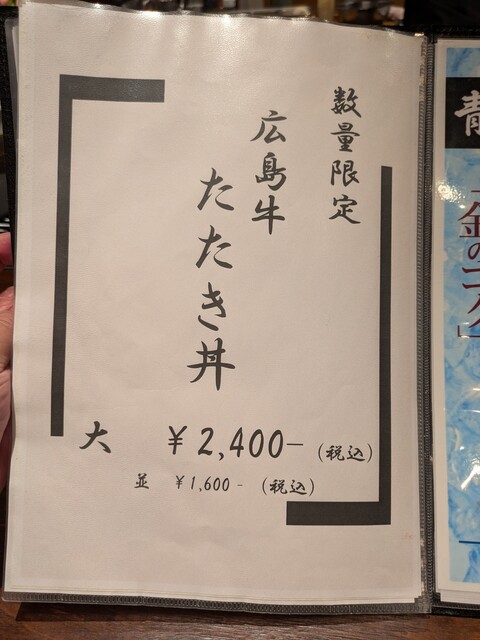 数量限定
広島牛
たたき丼
大 ¥2,400－ (税込)
並 ¥1,600－ (税込)